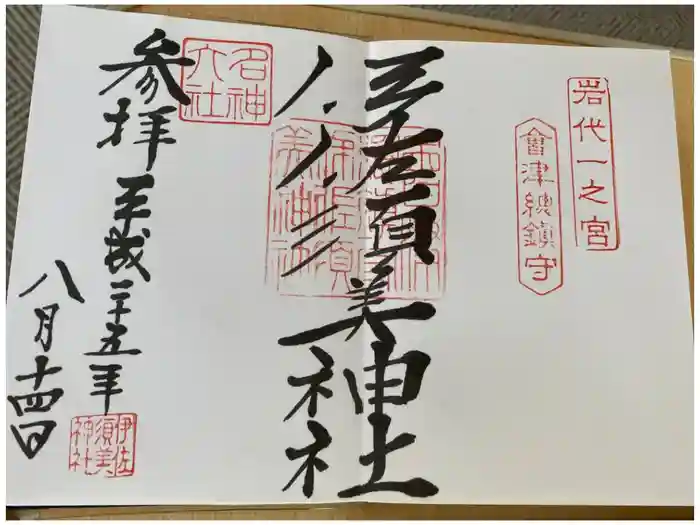 岩代一之宮
會津總鎮守
伊佐須美神社
名神大社
参拝
平成二十五年
八月十四日
伊佐須美神社